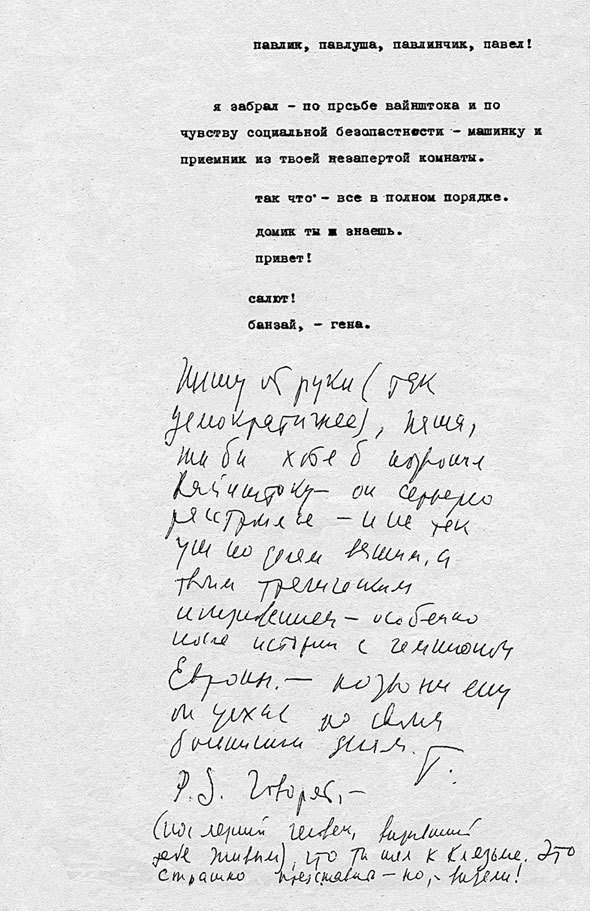 павлик, павлуша, павлинчик, павел!
я забрал - по прсьбе вайнштока и по
чувству социальной безопастности - машинку и
приемник из твоей незапертой комнаты.
так что - все в полном порядке.
домик ты ж знаешь.
привет!
салют!
банзай, - гена.
Пишу от руки (так
демократичнее), Паша,
ты бы хоть б позвонил
Вайнштоку - он серьезно
расстроился - и не так
уж по делам вашим, а
твоим трагическим
исчезновением - особенно
после истории с чемпионом
Европы. - позвони ему
он уехал по своим
больничным делам. Г.
P.S. Говорят, -
(последний человек, видевший
тебя живым), что ты шел к Клязьме. Это
страшно представить - но, - видели!